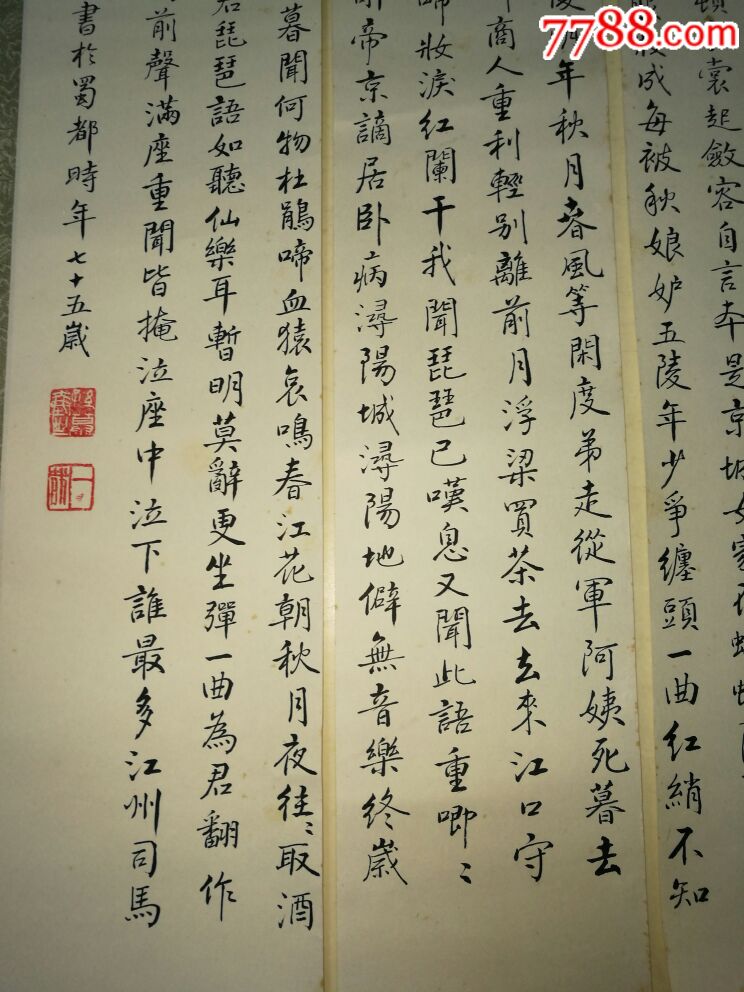 7788.com
裳起斂容自言本是京城女家在蝦蟆
成每被秋娘妒五陵年少爭纏頭一曲紅綃不知
年秋月春風等閑度弟走從軍阿姨死暮去
商人重利輕別離前月浮梁買茶去去來江口守
啼妝淚紅闌干我聞琵琶已嘆息又聞此語重唧〻
帝京謫居卧病潯陽城潯陽地僻無音樂終歲
暮聞何物杜鵑啼血猿哀鳴春江花朝秋月夜往〻取酒
琵琶語如聽仙樂耳暫明莫辭更坐彈一曲為君翻作
前聲滿座重聞皆掩泣座中泣下誰最多江州司馬
書於蜀都時年七十五歲